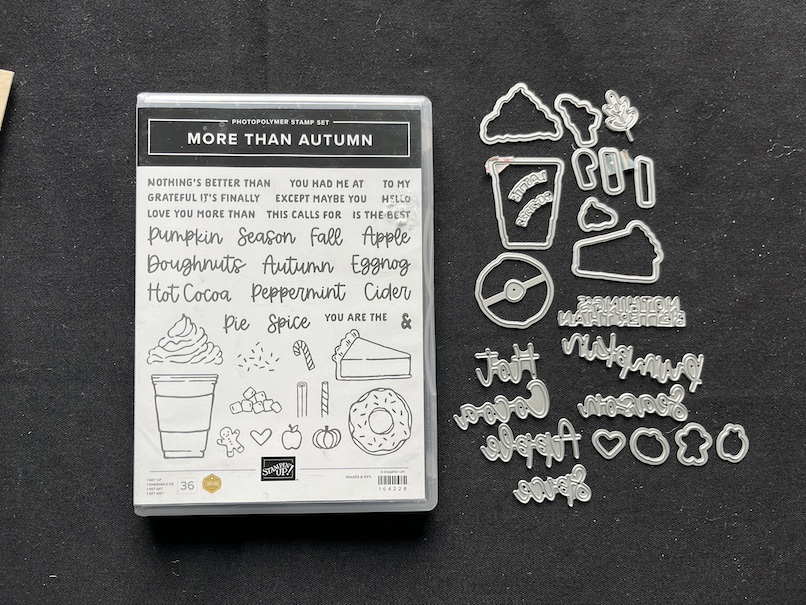 PHOTOPOLYMER STAMP SET
MORE THAN AUTUMN
NOTHING'S BETTER THAN YOU HAD ME AT TO MY
GRATEFUL IT'S FINALLY EXCEPT MAYBE YOU HELLO
LOVE YOU MORE THAN THIS CALLS FOR IS THE BEST
Pumpkin Season Fall Apple
Doughnuts Autumn Eggnog
Hot Cocoa Peppermint Cider
Pie Spice YOU ARE THE &
STAMPIN' UP!
36
164228
NOTHING'S
BETTER THAN
Pumpkin
Hot
Cocoa
Season
Apple